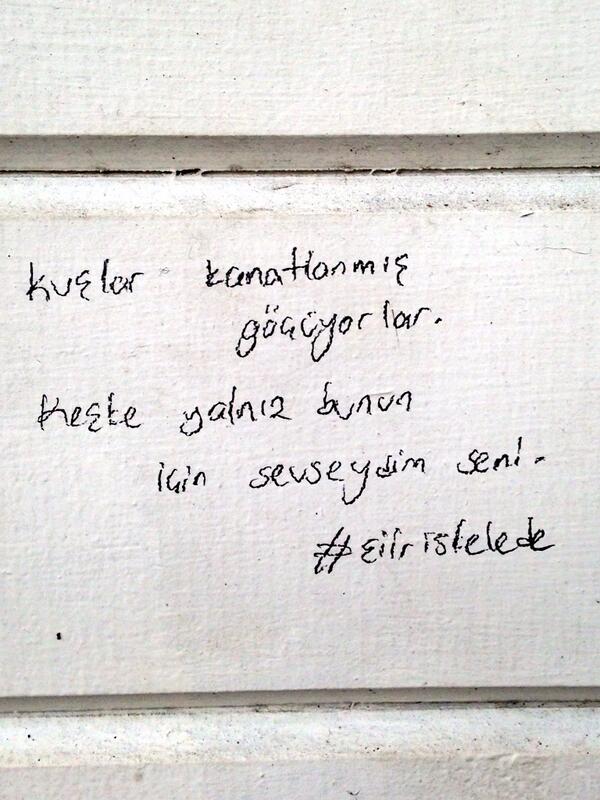 kuşlar kanatlanmış
göçüyorlar.
keşke yalnız bunun
için sevseydim seni.
#şiiriskelede